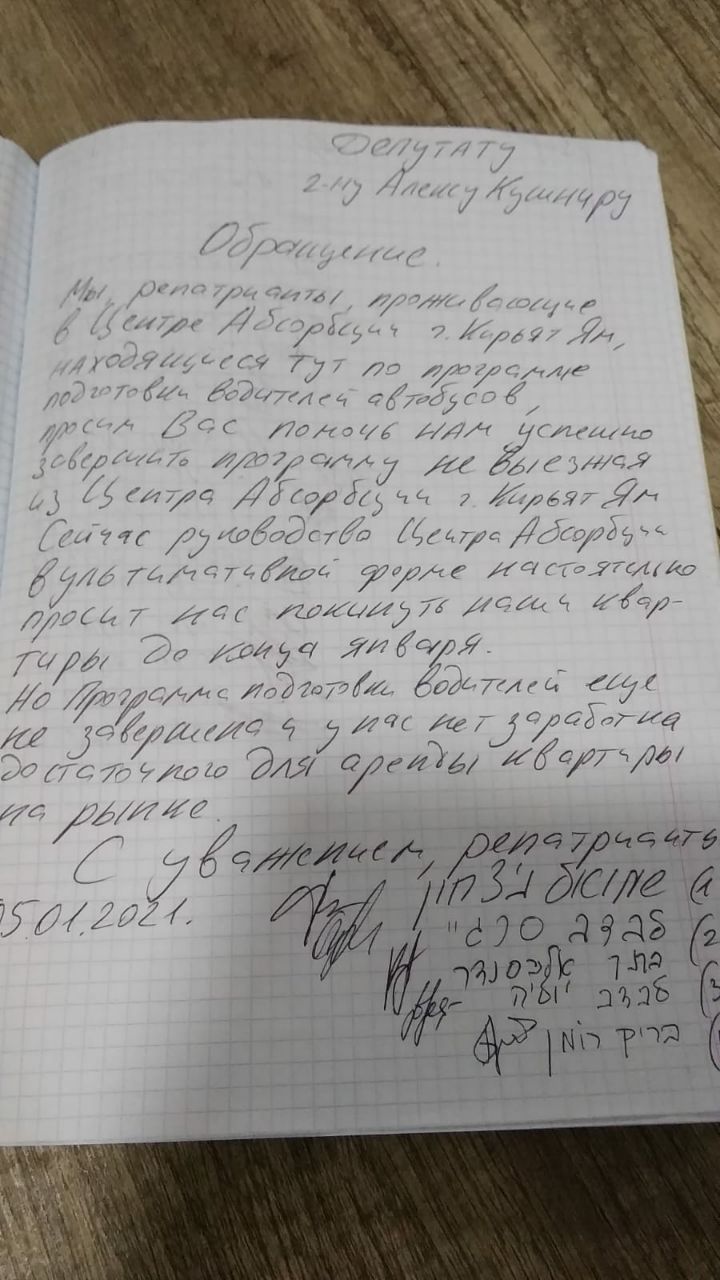 Депутату
г-ну Алексу Кушниру
Обращение.
Мы, репатрианты, проживающие
в Центре Абсорбции г. Кирьят Ям,
находящиеся тут по программе
подготовки водителей автобусов,
просим Вас помочь нам успешно
завершить программу не выезжая
из Центра Абсорбции г. Кирьят Ям
Сейчас руководство Центра Абсорбции
в ультимативной форме настоятельно
просит нас покинуть наши квар-
тиры до конца января.
Но Программа подготовки водителей еще
не завершена и у нас нет заработка
достаточного для аренды квартиры
на рынке.
С уважением, репатрианты
05.01.2021.
(2 לבדב סרגיי
אלכסנדר
(3 לבדב יוליה
בריק רומן